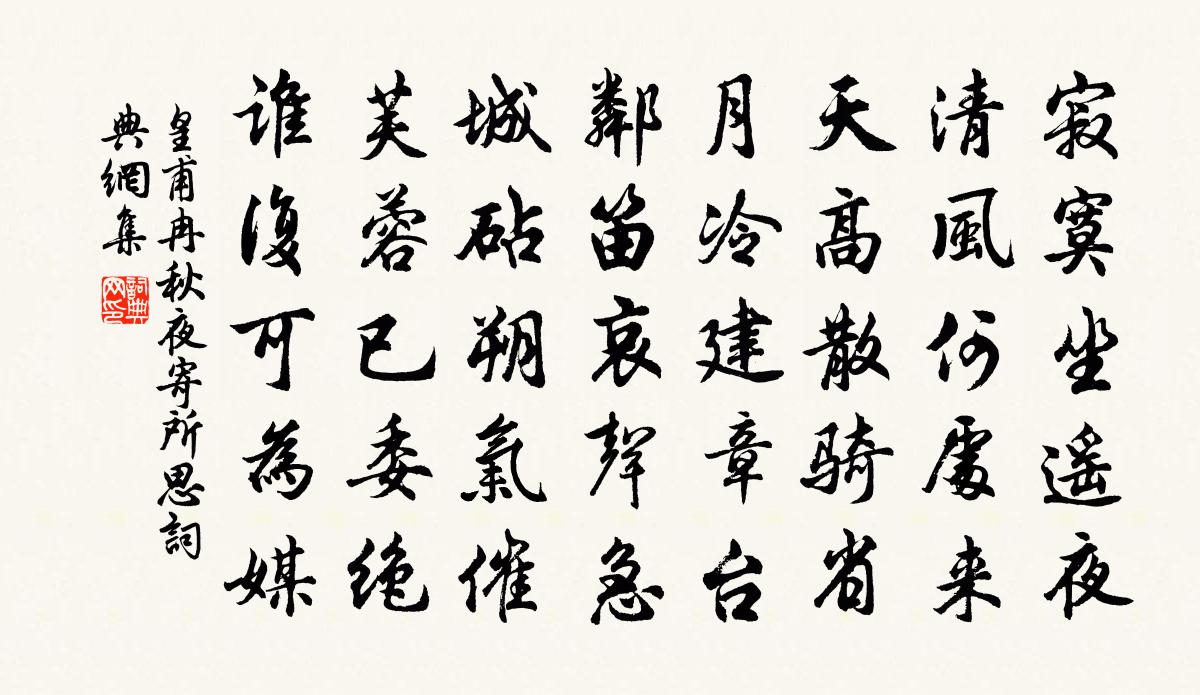 寂寞坐遥夜
清風何處来
天高散騎省
月冷建章台
鄰笛哀聲急
城砧朔氣催
芙蓉已委绝
誰復可為媒
皇甫冉秋夜寄所思詞
典網集
詞典
网印